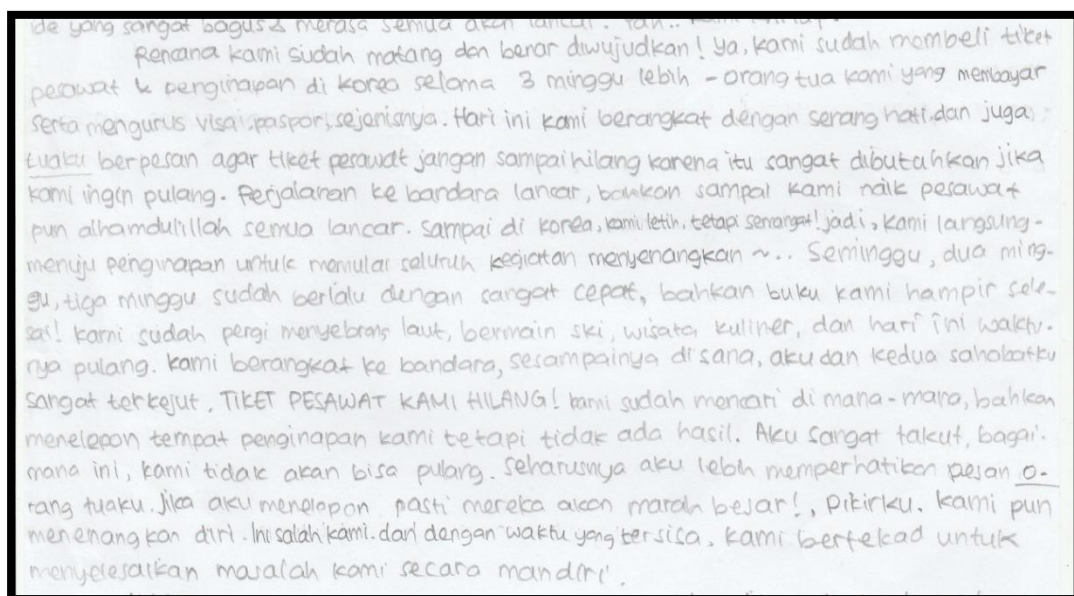 ide yang sangat bagus & merasa semua akan lancar.
Rencana kami sudah matang dan benar diwujudkan! Ya, kami sudah membeli tiket
pesawat & penginapan di korea selama 3 minggu lebih - orang tua kami yang membayar
serta mengurus visa, paspor, sejenisnya. Hari ini kami berangkat dengan senang hati. dan juga,
tuaku berpesan agar tiket pesawat jangan sampai hilang karena itu sangat dibutuhkan jika
kami ingin pulang. Perjalanan ke bandara lancar, bahkan sampai kami naik pesawat
pun alhamdulillah semua lancar. Sampai di korea, kami letih, tetapi semangat! jadi, kami langsung-
menuju penginapan untuk memulai seluruh kegiatan menyenangkan ~... Seminggu, dua ming-
gu, tiga minggu sudah berlalu dengan sangat cepat, bahkan buku kami hampir sele-
sai! kami sudah pergi menyebrang laut, bermain ski, wisata kuliner, dan hari ini waktu-
nya pulang. kami berangkat ke bandara, sesampainya di sana, aku dan kedua sahabatku
sangat terkejut. TIKET PESAWAT KAMI HILANG! kami sudah mencari di mana-mana, bahkan
menelepon tempat penginapan kami tetapi tidak ada hasil. Aku sangat takut, bagai-
mana ini, kami tidak akan bisa pulang. Seharusnya aku lebih memperhatikan pesan o-
rang tuaku. jika aku menelopon pasti mereka akan marah besar!, pikirku. kami pun
menenangkan diri. Ini salah kami. dan dengan waktu yang tersisa, kami bertekad untuk
menyelesaikan masalah kami secara mandiri.